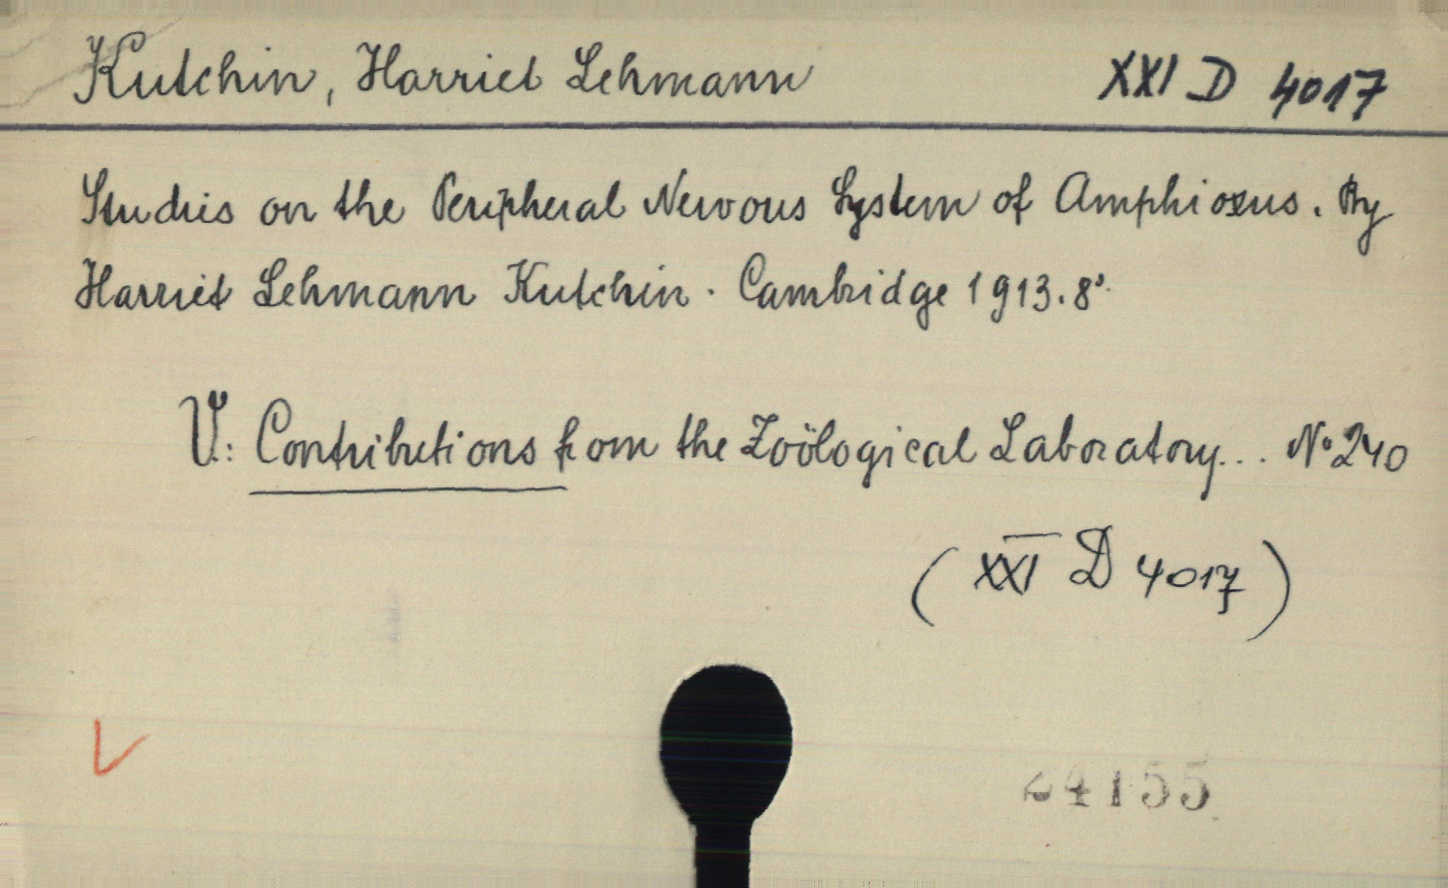 Kutchin, Harriet Lehmann XXI D 4017
Studies on the Peripheral Nervous System of Amphioxus. By
Harriet Lehmann Kutchin. Cambridge 1913. 8°.
V.: Contributions from the Zoölogical Laboratory... No 240
(XXI D 4017)
24155